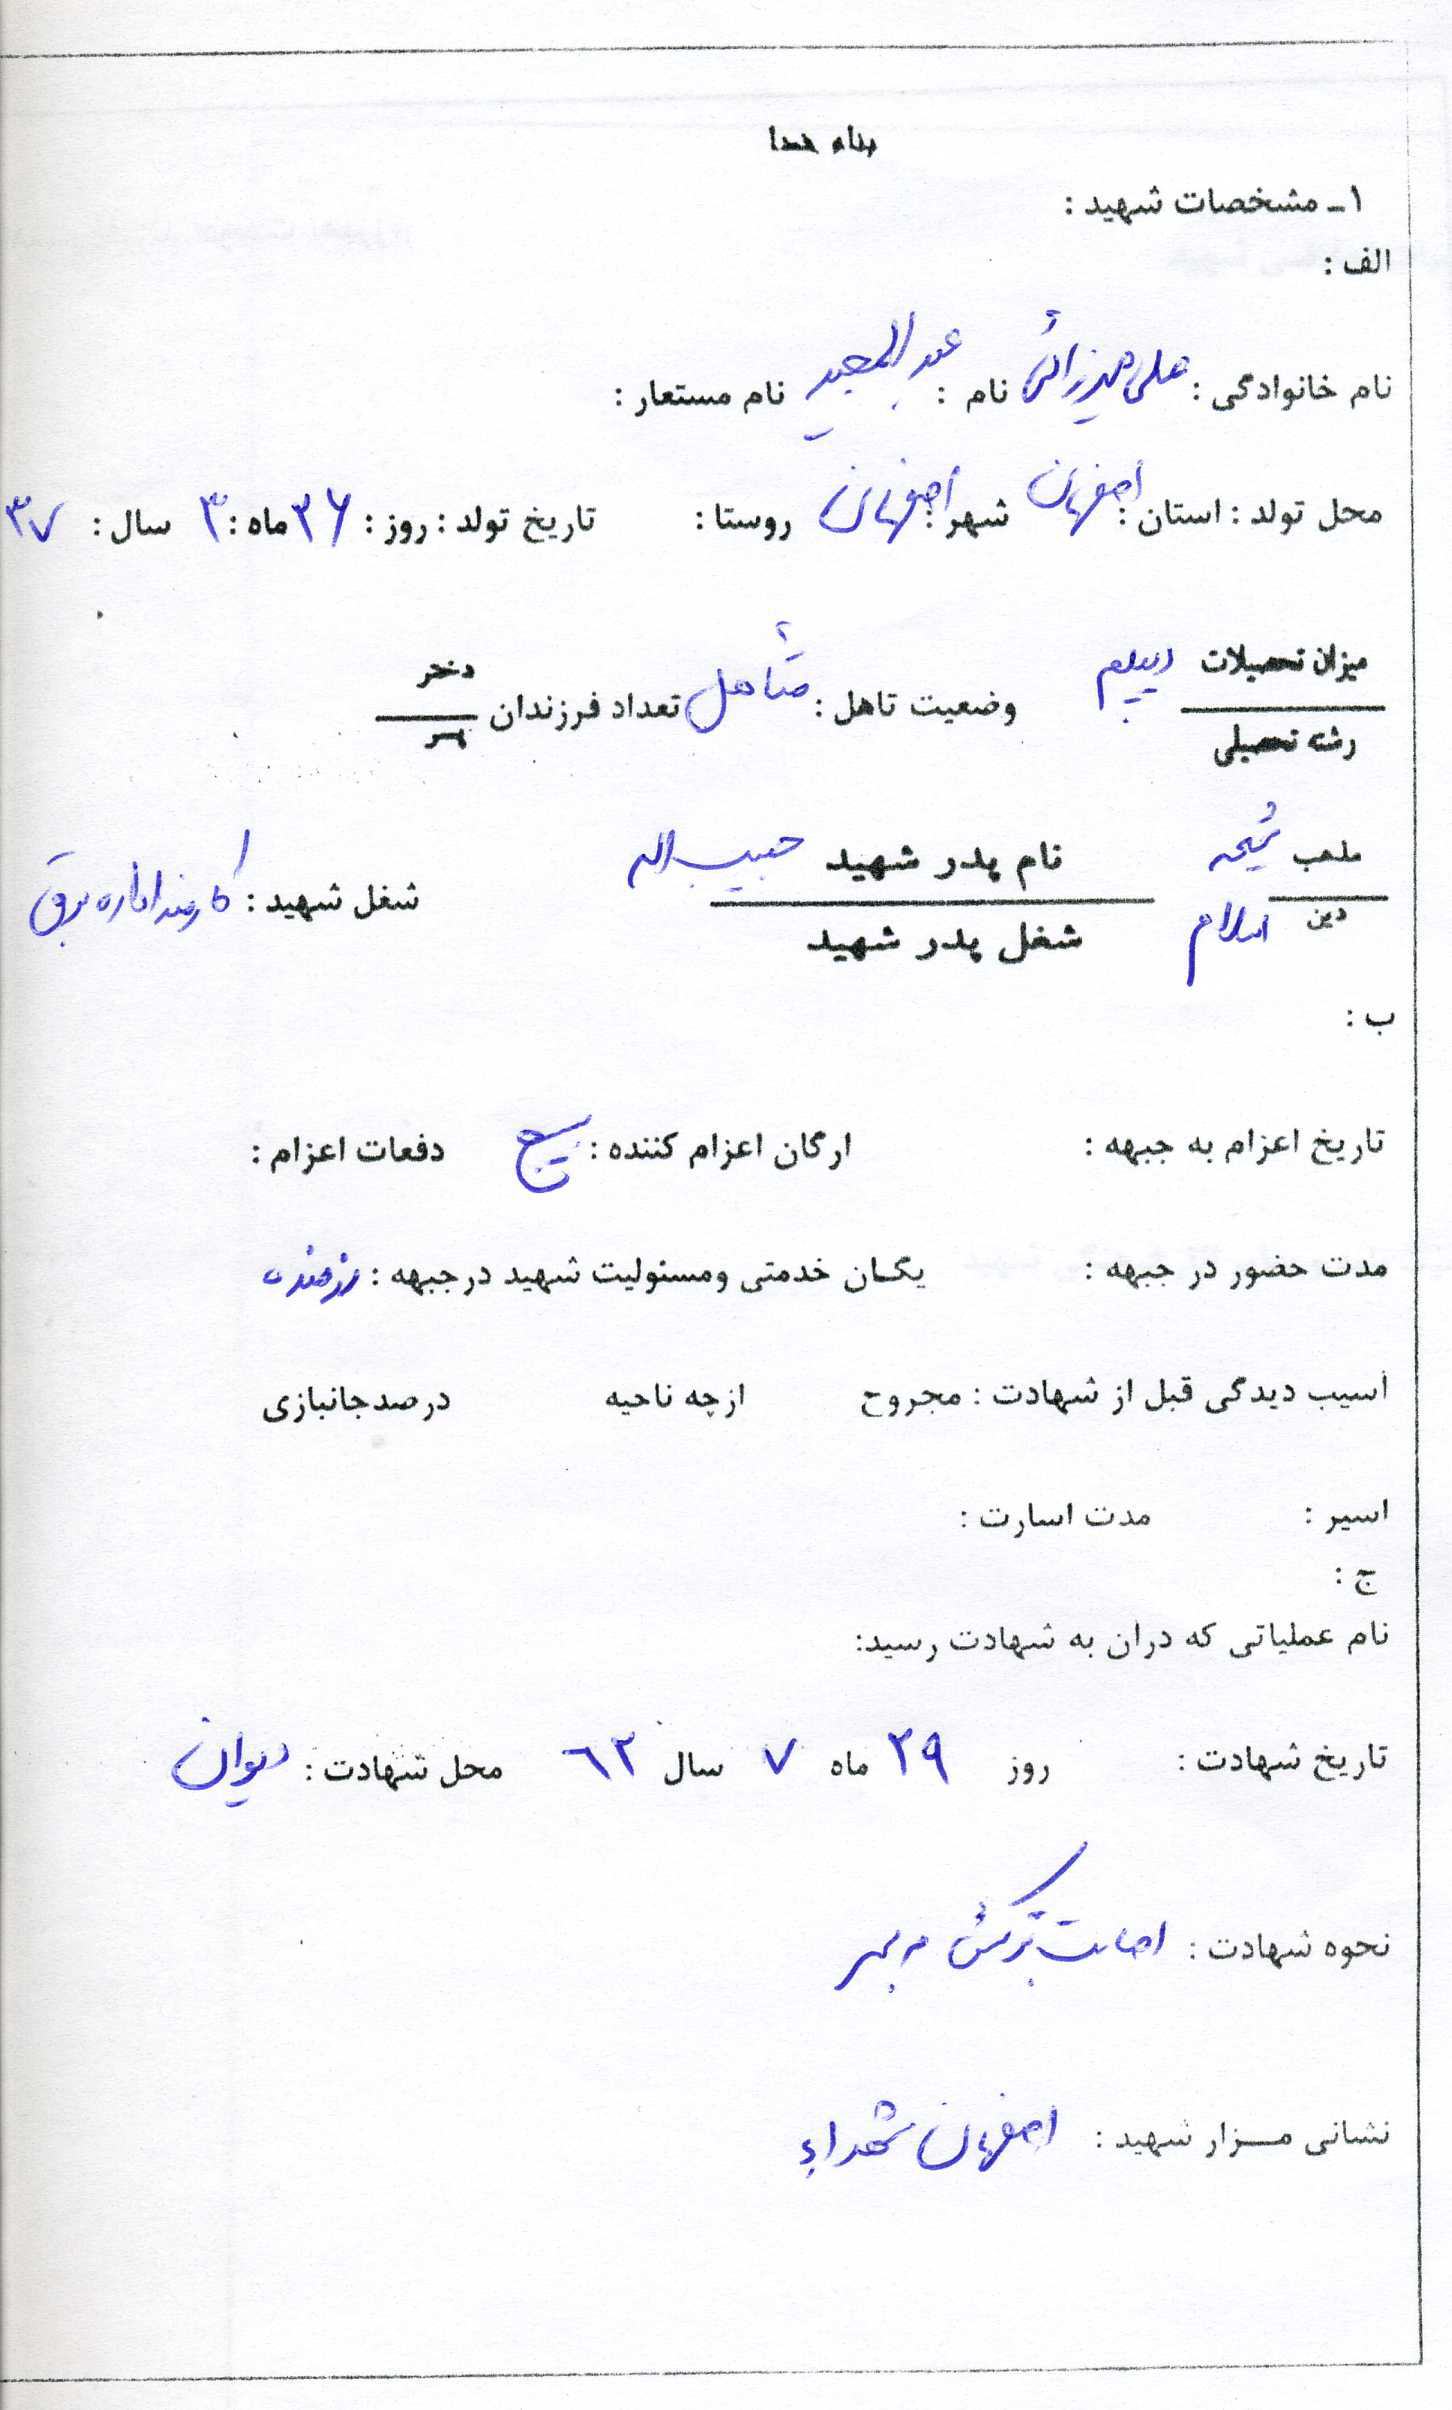 بنام خدا
۱ـ مشخصات شهید :
الف :
نام خانوادگی : علی میرزائی نام : عبدالمجید نام مستعار :
محل تولد : استان : اصفهان شهر : اصفهان روستا : تاریخ تولد : روز : ۲۶ ماه : ۳ سال : ۳۷
میزان تحصیلات دیپلم
رشته تحصیلی
وضعیت تاهل : متأهل تعداد فرزندان دختر
پسر
مذهب شیعه نام پدر شهید حبیب اله
دین اسلام شغل پدر شهید
شغل شهید : کارمند اداره برق
ب :
تاریخ اعزام به جبهه : ارگان اعزام کننده : بسیج دفعات اعزام :
مدت حضور در جبهه : یگان خدمتی ومسئولیت شهید درجبهه : رزمنده
آسیب دیدگی قبل از شهادت : مجروح ازچه ناحیه درصدجانبازی
اسیر : مدت اسارت :
ج :
نام عملیاتی که دران به شهادت رسید:
تاریخ شهادت : روز ۲۹ ماه ۷ سال ۶۳ محل شهادت :
نحوه شهادت : اصابت ترکش به سر
نشانی مزار شهید : اصفهان شهداء